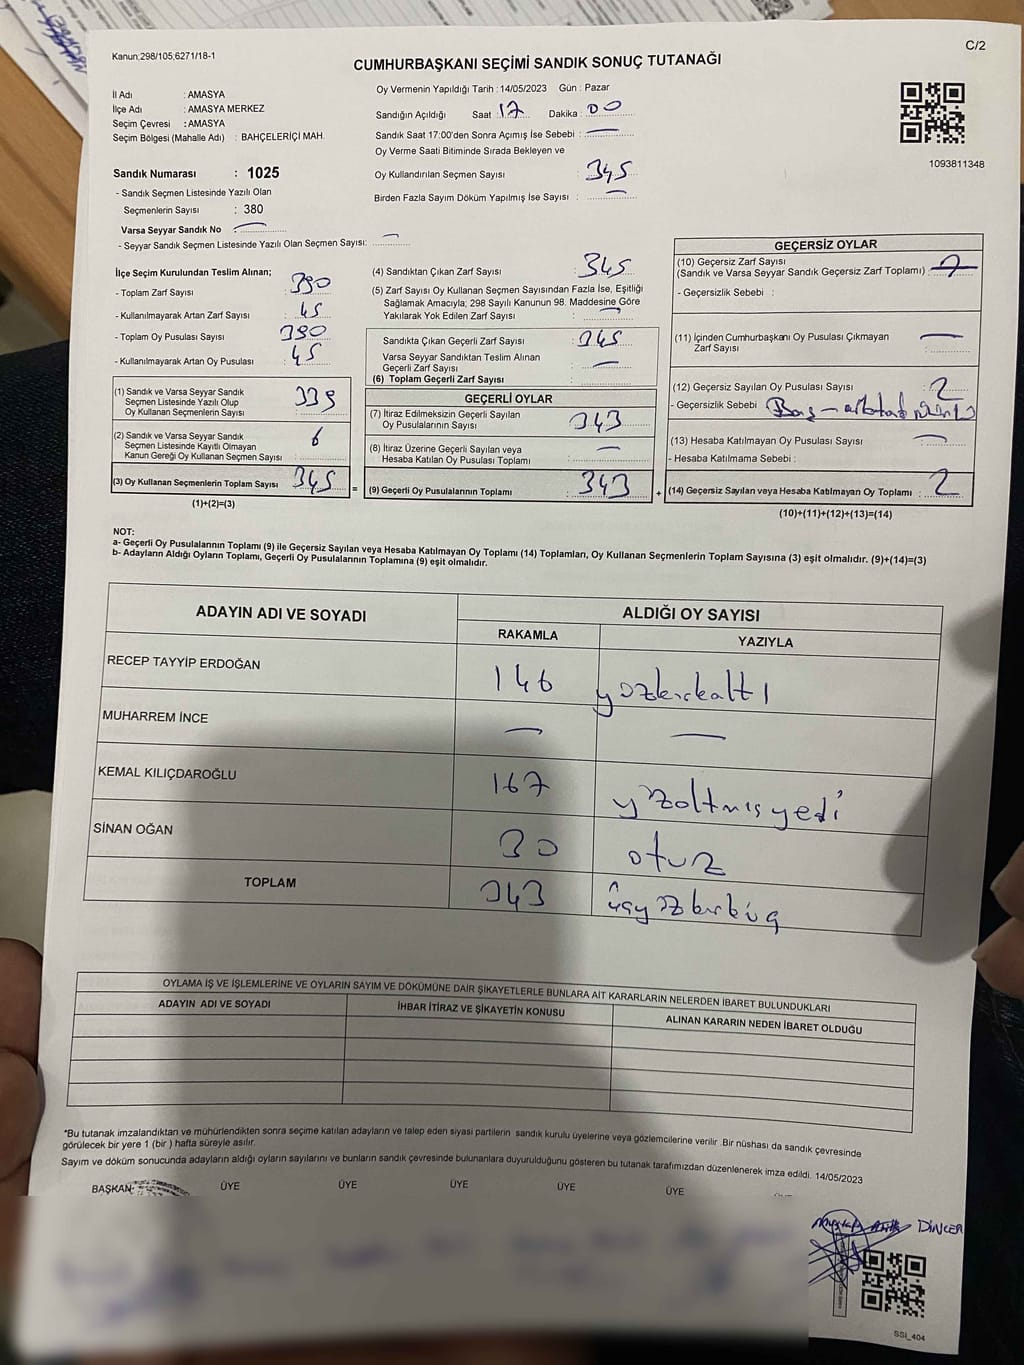 Kanun;298/105,6271/18-1
C/2
CUMHURBAŞKANI SEÇİMİ SANDIK SONUÇ TUTANAĞI
İl Adı : AMASYA
İlçe Adı : AMASYA MERKEZ
Seçim Çevresi : AMASYA
Seçim Bölgesi (Mahalle Adı) : BAHÇELERİÇİ MAH.
Sandık Numarası : 1025
- Sandık Seçmen Listesinde Yazılı Olan
Seçmenlerin Sayısı : 380
Varsa Seyyar Sandık No :
- Seyyar Sandık Seçmen Listesinde Yazılı Olan Seçmen Sayısı:
Oy Vermenin Yapıldığı Tarih : 14/05/2023 Gün : Pazar
Sandığın Açıldığı Saat : 17 Dakika : 00
Sandık Saat 17:00'den Sonra Açımış İse Sebebi :
Oy Verme Saati Bitiminde Sırada Bekleyen ve
Oy Kullandırılan Seçmen Sayısı : 345
Birden Fazla Sayım Döküm Yapılmış İse Sayısı :
1093811348
İlçe Seçim Kurulundan Teslim Alınan;
- Toplam Zarf Sayısı : 390
- Kullanılmayarak Artan Zarf Sayısı : 45
- Toplam Oy Pusulası Sayısı : 390
- Kullanılmayarak Artan Oy Pusulası : 45
(1) Sandık ve Varsa Seyyar Sandık
Seçmen Listesinde Yazılı Olup
Oy Kullanan Seçmenlerin Sayısı : 339
(2) Sandık ve Varsa Seyyar Sandık
Seçmen Listesinde Kayıtlı Olmayan
Kanun Gereği Oy Kullanan Seçmen Sayısı : 6
(3) Oy Kullanan Seçmenlerin Toplam Sayısı : 345
(1)+(2)=(3)
(4) Sandıktan Çıkan Zarf Sayısı : 345
(5) Zarf Sayısı Oy Kullanan Seçmen Sayısından Fazla İse, Eşitliği
Sağlamak Amacıyla; 298 Sayılı Kanunun 98. Maddesine Göre
Yakılarak Yok Edilen Zarf Sayısı :
Sandıkta Çıkan Geçerli Zarf Sayısı : 345
Varsa Seyyar Sandıktan Teslim Alınan
Geçerli Zarf Sayısı :
(6) Toplam Geçerli Zarf Sayısı :
GEÇERLİ OYLAR
(7) İtiraz Edilmeksizin Geçerli Sayılan
Oy Pusulalarının Sayısı : 343
(8) İtiraz Üzerine Geçerli Sayılan veya
Hesaba Katılan Oy Pusulası Toplamı :
= (9) Geçerli Oy Pusulalarının Toplamı : 343 +
GEÇERSİZ OYLAR
(10) Geçersiz Zarf Sayısı
(Sandık ve Varsa Seyyar Sandık Geçersiz Zarf Toplamı) :
- Geçersizlik Sebebi :
(11) İçinden Cumhurbaşkanı Oy Pusulası Çıkmayan
Zarf Sayısı :
(12) Geçersiz Sayılan Oy Pusulası Sayısı : 2
- Geçersizlik Sebebi :
(13) Hesaba Katılmayan Oy Pusulası Sayısı :
- Hesaba Katılmama Sebebi :
(14) Geçersiz Sayılan veya Hesaba Katılmayan Oy Toplamı : 2
(10)+(11)+(12)+(13)=(14)
NOT:
a- Geçerli Oy Pusulalarının Toplamı (9) ile Geçersiz Sayılan veya Hesaba Katılmayan Oy Toplamı (14) Toplamları, Oy Kullanan Seçmenlerin Toplam Sayısına (3) eşit olmalıdır. (9)+(14)=(3)
b- Adayların Aldığı Oyların Toplamı, Geçerli Oy Pusulalarının Toplamına (9) eşit olmalıdır.
ADAYIN ADI VE SOYADI
ALDIĞI OY SAYISI
RAKAMLA
YAZIYLA
RECEP TAYYİP ERDOĞAN 146 yüzkırkaltı
MUHARREM İNCE — —
KEMAL KILIÇDAROĞLU 167 yüzaltmışyedi
SİNAN OĞAN 30 otuz
TOPLAM 343 üçyüzkırküç
OYLAMA İŞ VE İŞLEMLERİNE VE OYLARIN SAYIM VE DÖKÜMÜNE DAİR ŞİKAYETLERLE BUNLARA AİT KARARLARIN NELERDEN İBARET BULUNDUKLARI
ADAYIN ADI VE SOYADI
İHBAR İTİRAZ VE ŞİKAYETİN KONUSU
ALINAN KARARIN NEDEN İBARET OLDUĞU
*Bu tutanak imzalandıktan ve mühürlendikten sonra seçime katılan adayların ve talep eden siyasi partilerin sandık kurulu üyelerine veya gözlemcilerine verilir .Bir nüshası da sandık çevresinde
görülecek bir yere 1 (bir ) hafta süreyle asılır.
Sayım ve döküm sonucunda adayların aldığı oyların sayılarını ve bunların sandık çevresinde bulunanlara duyurulduğunu gösteren bu tutanak tarafımızdan düzenlenerek imza edildi. 14/05/2023
BAŞKAN ÜYE ÜYE ÜYE ÜYE ÜYE
DİNCER
SSİ_404